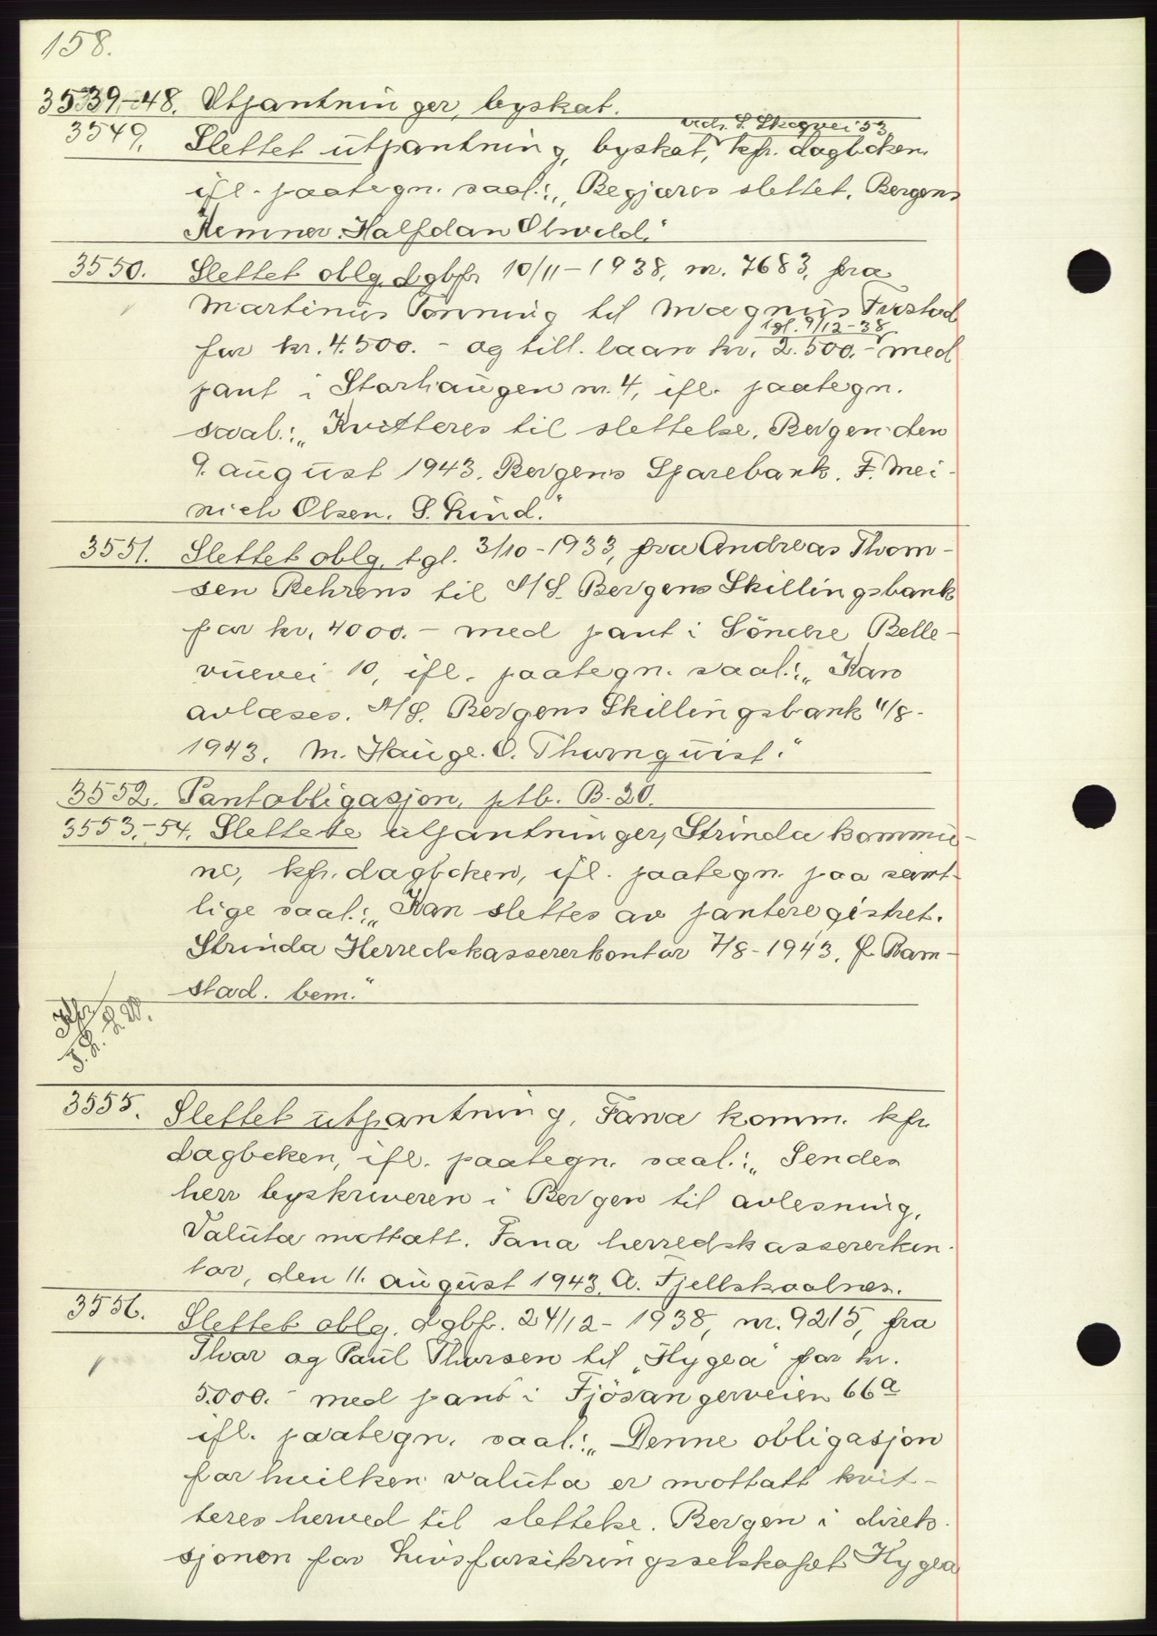 158.
3539.-48. Utpantninger, byskat.
vedr. S. Skogvei 53,
3549. Slettet utpantning, byskat, kfr. dagboken
ifl. paategn. saal.: „Begjæres slettet. Bergens
Kemner. Halfdan Olsvold."
3550. Slettet oblg. dgbfr 10/11-1938, nr. 7683, fra
Martinus Tonning til Magnus Frostad
tgl. 9/12-38
for kr. 4.500.- og till. laan kr. 2.500.- med
pant i Storhaugen nr. 4, ifl. paategn.
saal.: „Kvitteres til slettelse. Bergen den
9. august 1943. Bergens Sparebank. F. Mei-
nich Olsen. S. Lind."
3551. Slettet oblg. tgl. 3/10-1933, fra Andreas Thom-
sen Behrens til A/S. Bergens Skillingsbank
for kr. 4000.- med pant i Söndre Belle-
vuevei 10, ifl. paategn. saal.: „Kan
avlæses. A/S. Bergens Skillingsbank 11/8-
1943. M. Hauge. O. Thornquist."
3552. Pantobligasjon, ptb. B. 20.
3553.-54. Slettete utpantninger, Strinda kommu-
ne, kfr. dagboken, ifl. paategn. paa samt-
lige saal.: „Kan slettes av panteregistret.
Strinda Herredskassererkontor 7/8-1943. P. Ram-
stad. bem."
3555. Slettet utpantning, Fana komm. kfr.
dagboken, ifl. paategn. saal.: „Sendes
herr byskriveren i Bergen til avlesning.
Valuta mottatt. Fana herredskassererkon-
tor, den 11. august 1943. A. Fjellskaalnes.
3556. Slettet oblg. dgbfr. 24/12-1938, nr. 9215, fra
Thor og Paul Thorsen til „Hygea" for kr.
5.000.- med pant i Fjösangerveien 66a
ifl. paategn. saal.: „Denne obligasjon
for hvilken valuta er mottatt kvit-
teres herved til slettelse. Bergen i direk-
sjonen for Livsforsikringsselskapet Hygea